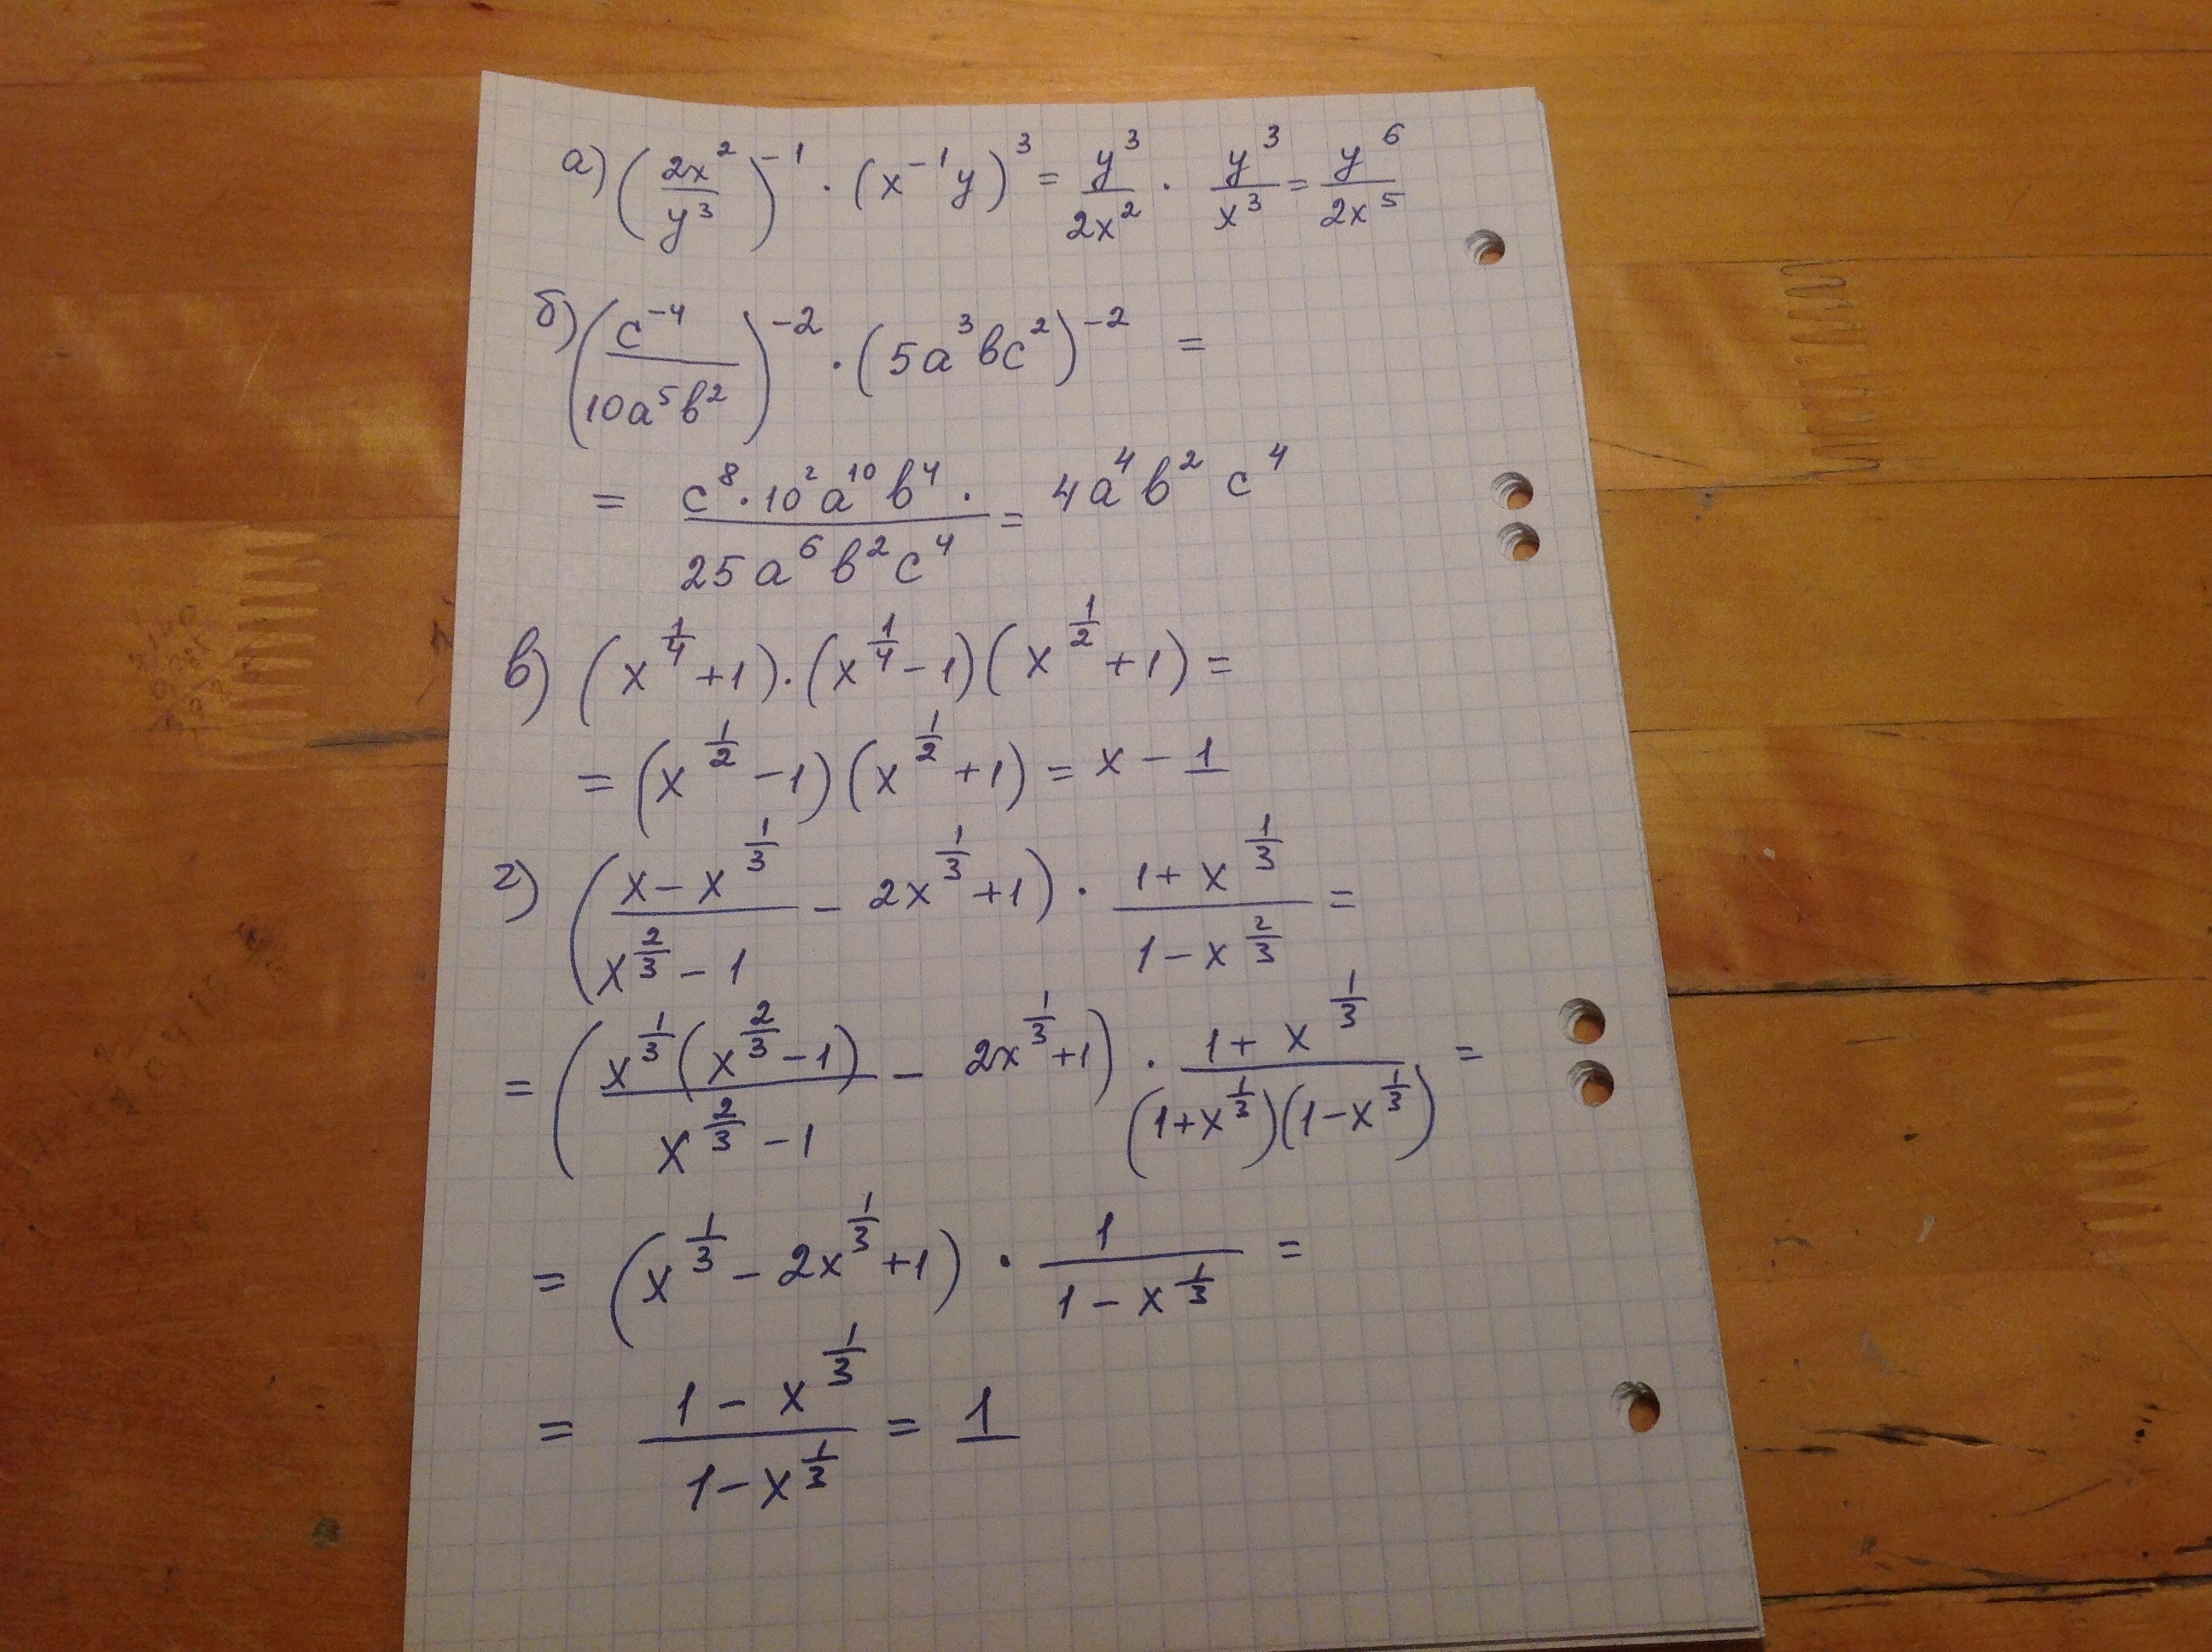 а) (2x²/y³)⁻¹ · (x⁻¹y)³ = y³/2x² · y³/x³ = y⁶/2x⁵
б) (c⁻⁴/10a⁵b²)⁻² · (5a³bc²)⁻² =
= c⁸·10²a¹⁰b⁴·/25a⁶b²c⁴ = 4a⁴b²c⁴
в) (x^(1/4)+1)·(x^(1/4)-1)(x^(1/2)+1) =
= (x^(1/2)-1)(x^(1/2)+1) = x-1
г) ((x-x^(1/3))/(x^(2/3)-1) - 2x^(1/3)+1) · (1+x^(1/3))/(1-x^(2/3)) =
= (x^(1/3)(x^(2/3)-1)/(x^(2/3)-1) - 2x^(1/3)+1) · (1+x^(1/3))/((1+x^(1/3))(1-x^(1/3))) =
= (x^(1/3) - 2x^(1/3)+1) · 1/(1-x^(1/3)) =
= (1-x^(1/3))/(1-x^(1/3)) = 1